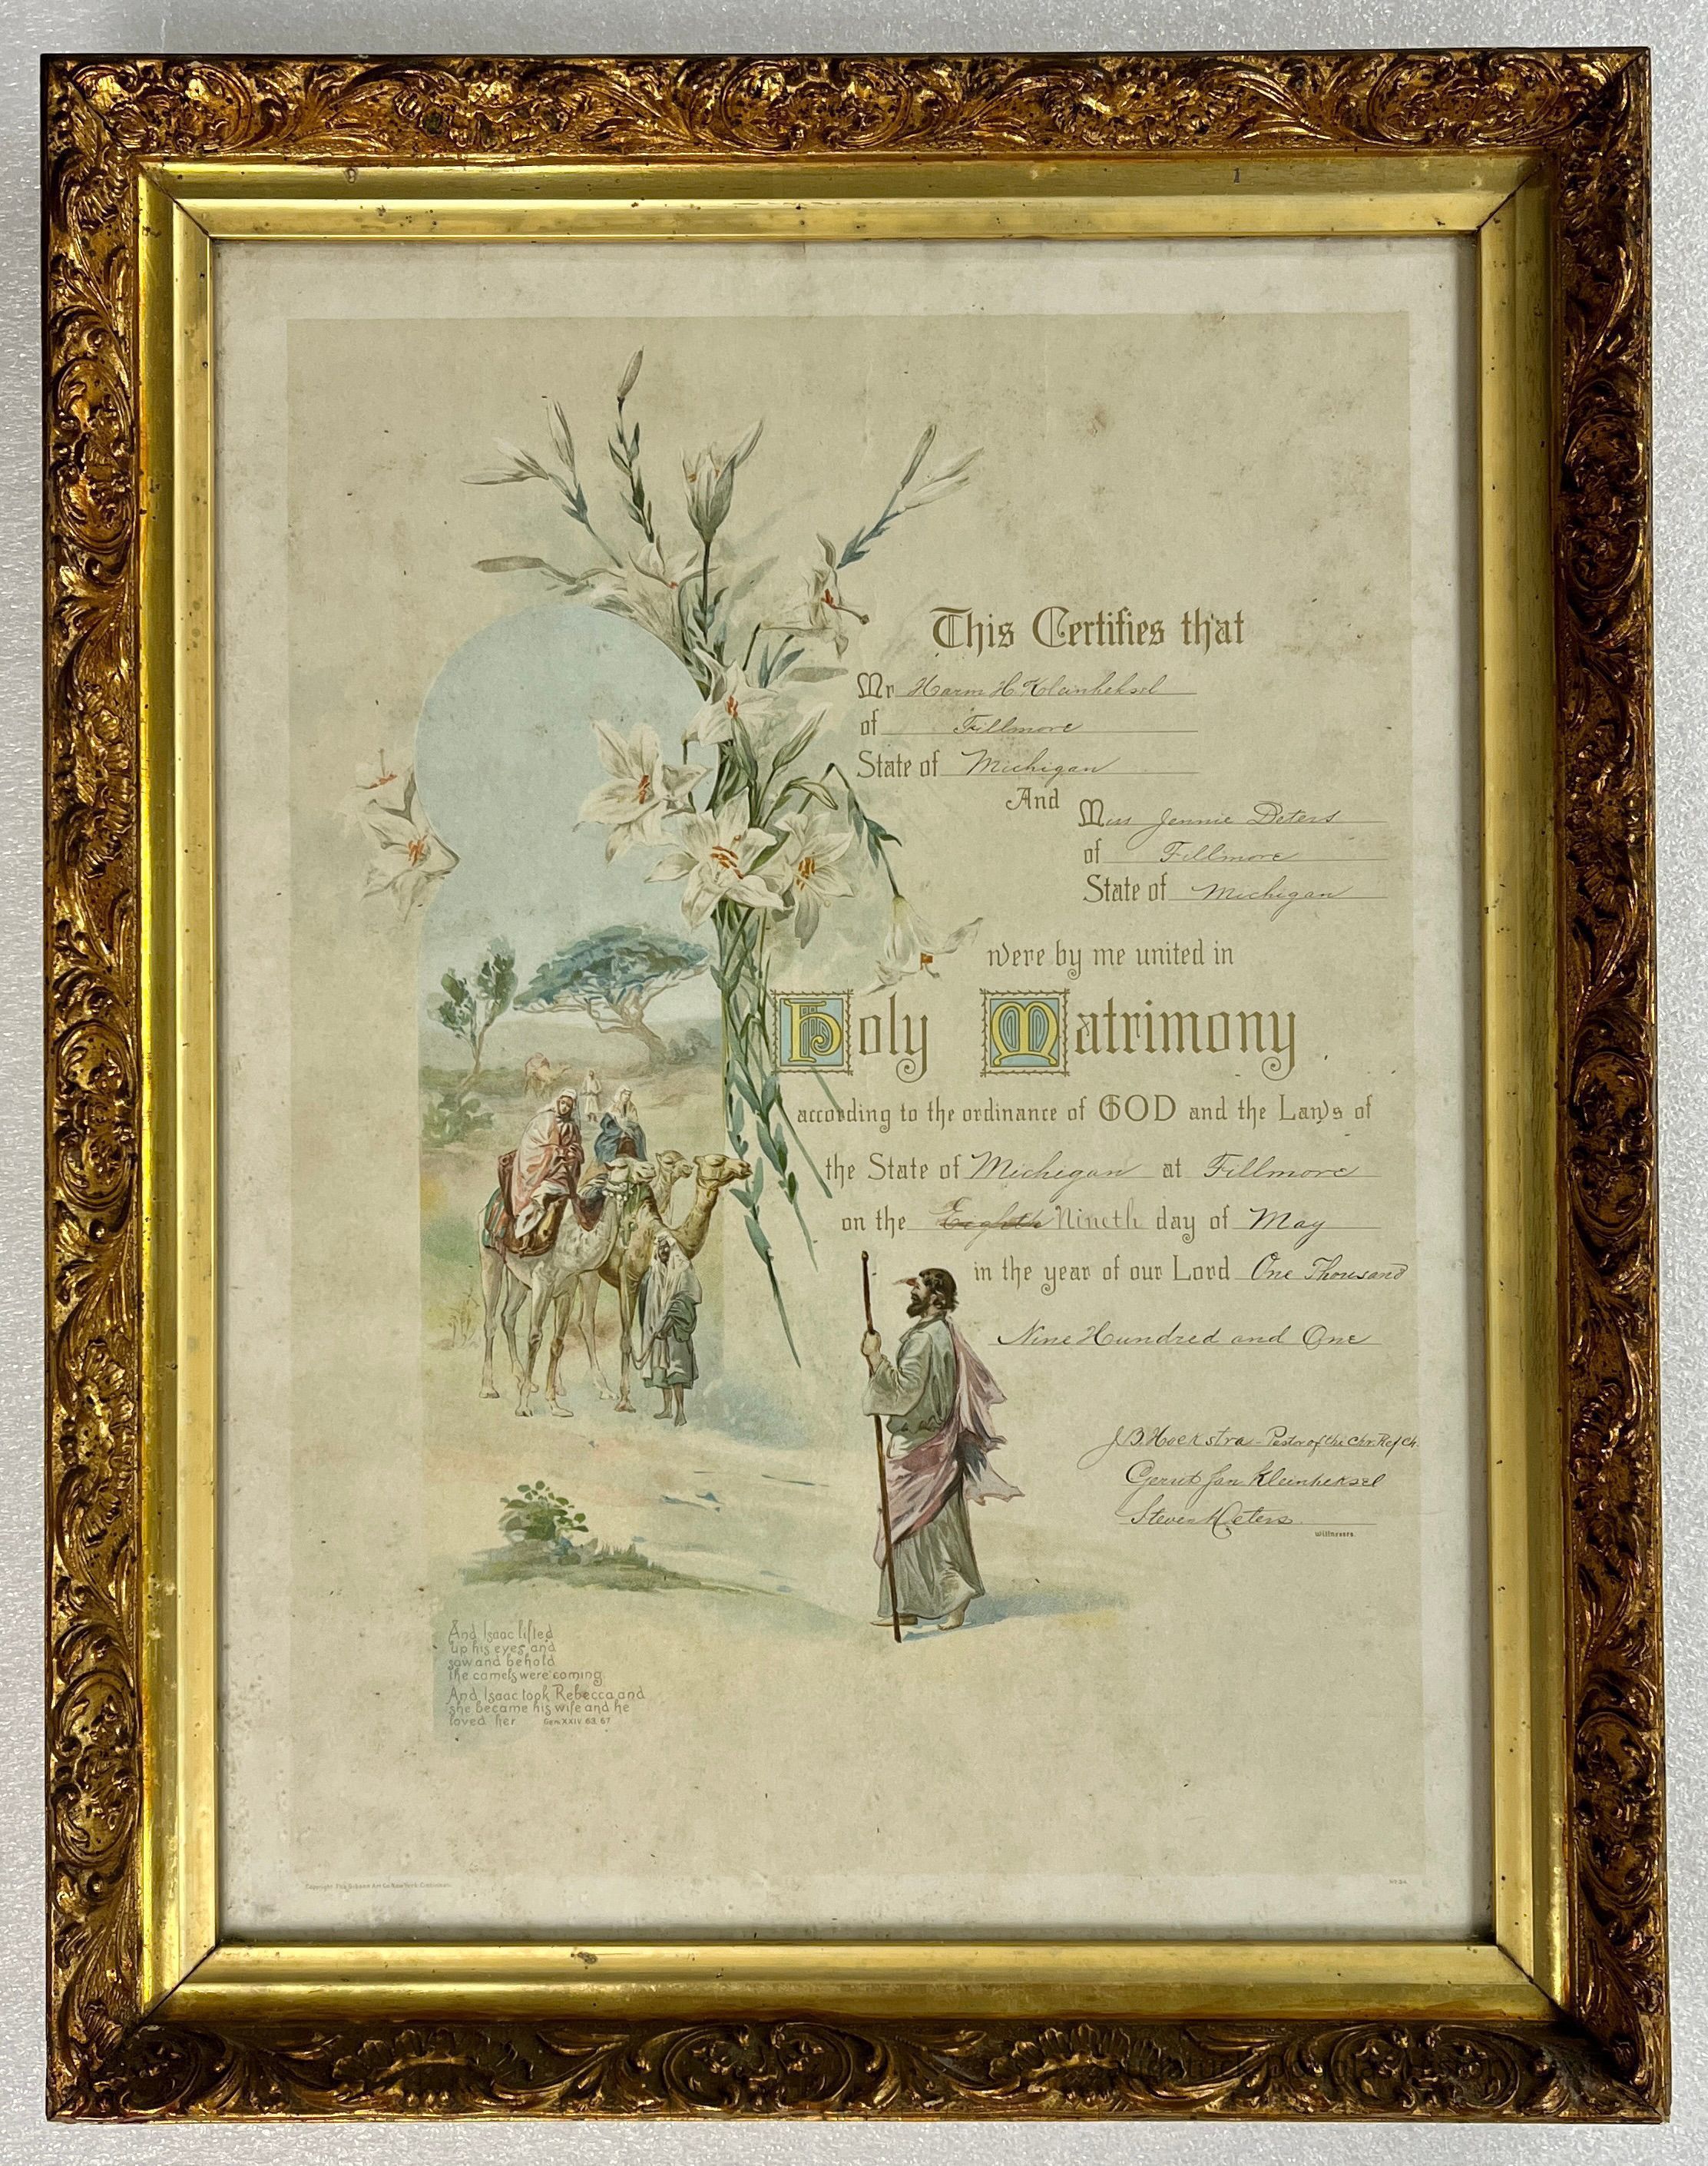 This Certifies that
Mr Harm H. Kleinheksel
of Fillmore
State of Michigan
And
Miss Jennie Deters
of Fillmore
State of Michigan
were by me united in
Holy Matrimony
according to the ordinance of GOD and the Laws of
the State of Michigan at Fillmore
on the Eighth Nineth day of May
in the year of our Lord One Thousand
Nine Hundred and One
J B Hoekstra - Pastor of the Chr. Ref Ch.
Gerrit Jan Kleinheksel
Steven Deters
Witnesses.
And Isaac lifted
up his eyes and
saw and behold
the camels were coming
And Isaac took Rebecca and
she became his wife and he
loved her Gen XXIV 63 67